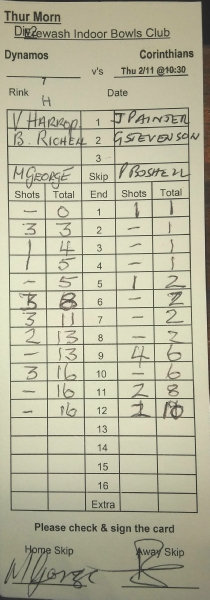 Thur Morn
Div2 Erewash Indoor Bowls Club
Dynamos Corinthians
7 v's Thu 2/11 @10:30
Rink Date
H
V HARROD 1 J PAINTER
B. RICHER 2 G STEVENSON
3
M GEORGE Skip P BOSHELL
Shots Total End Shots Total
- 0 1 1 1
3 3 2 - 1
1 4 3 - 1
1 5 4 - 1
- 5 5 1 2
3 8 6 - 2
3 11 7 - 2
2 13 8 - 2
- 13 9 4 6
3 16 10 - 6
- 16 11 2 8
- 16 12 2 10
13
14
15
16
Extra
Please check & sign the card
Home Skip Away Skip
M George